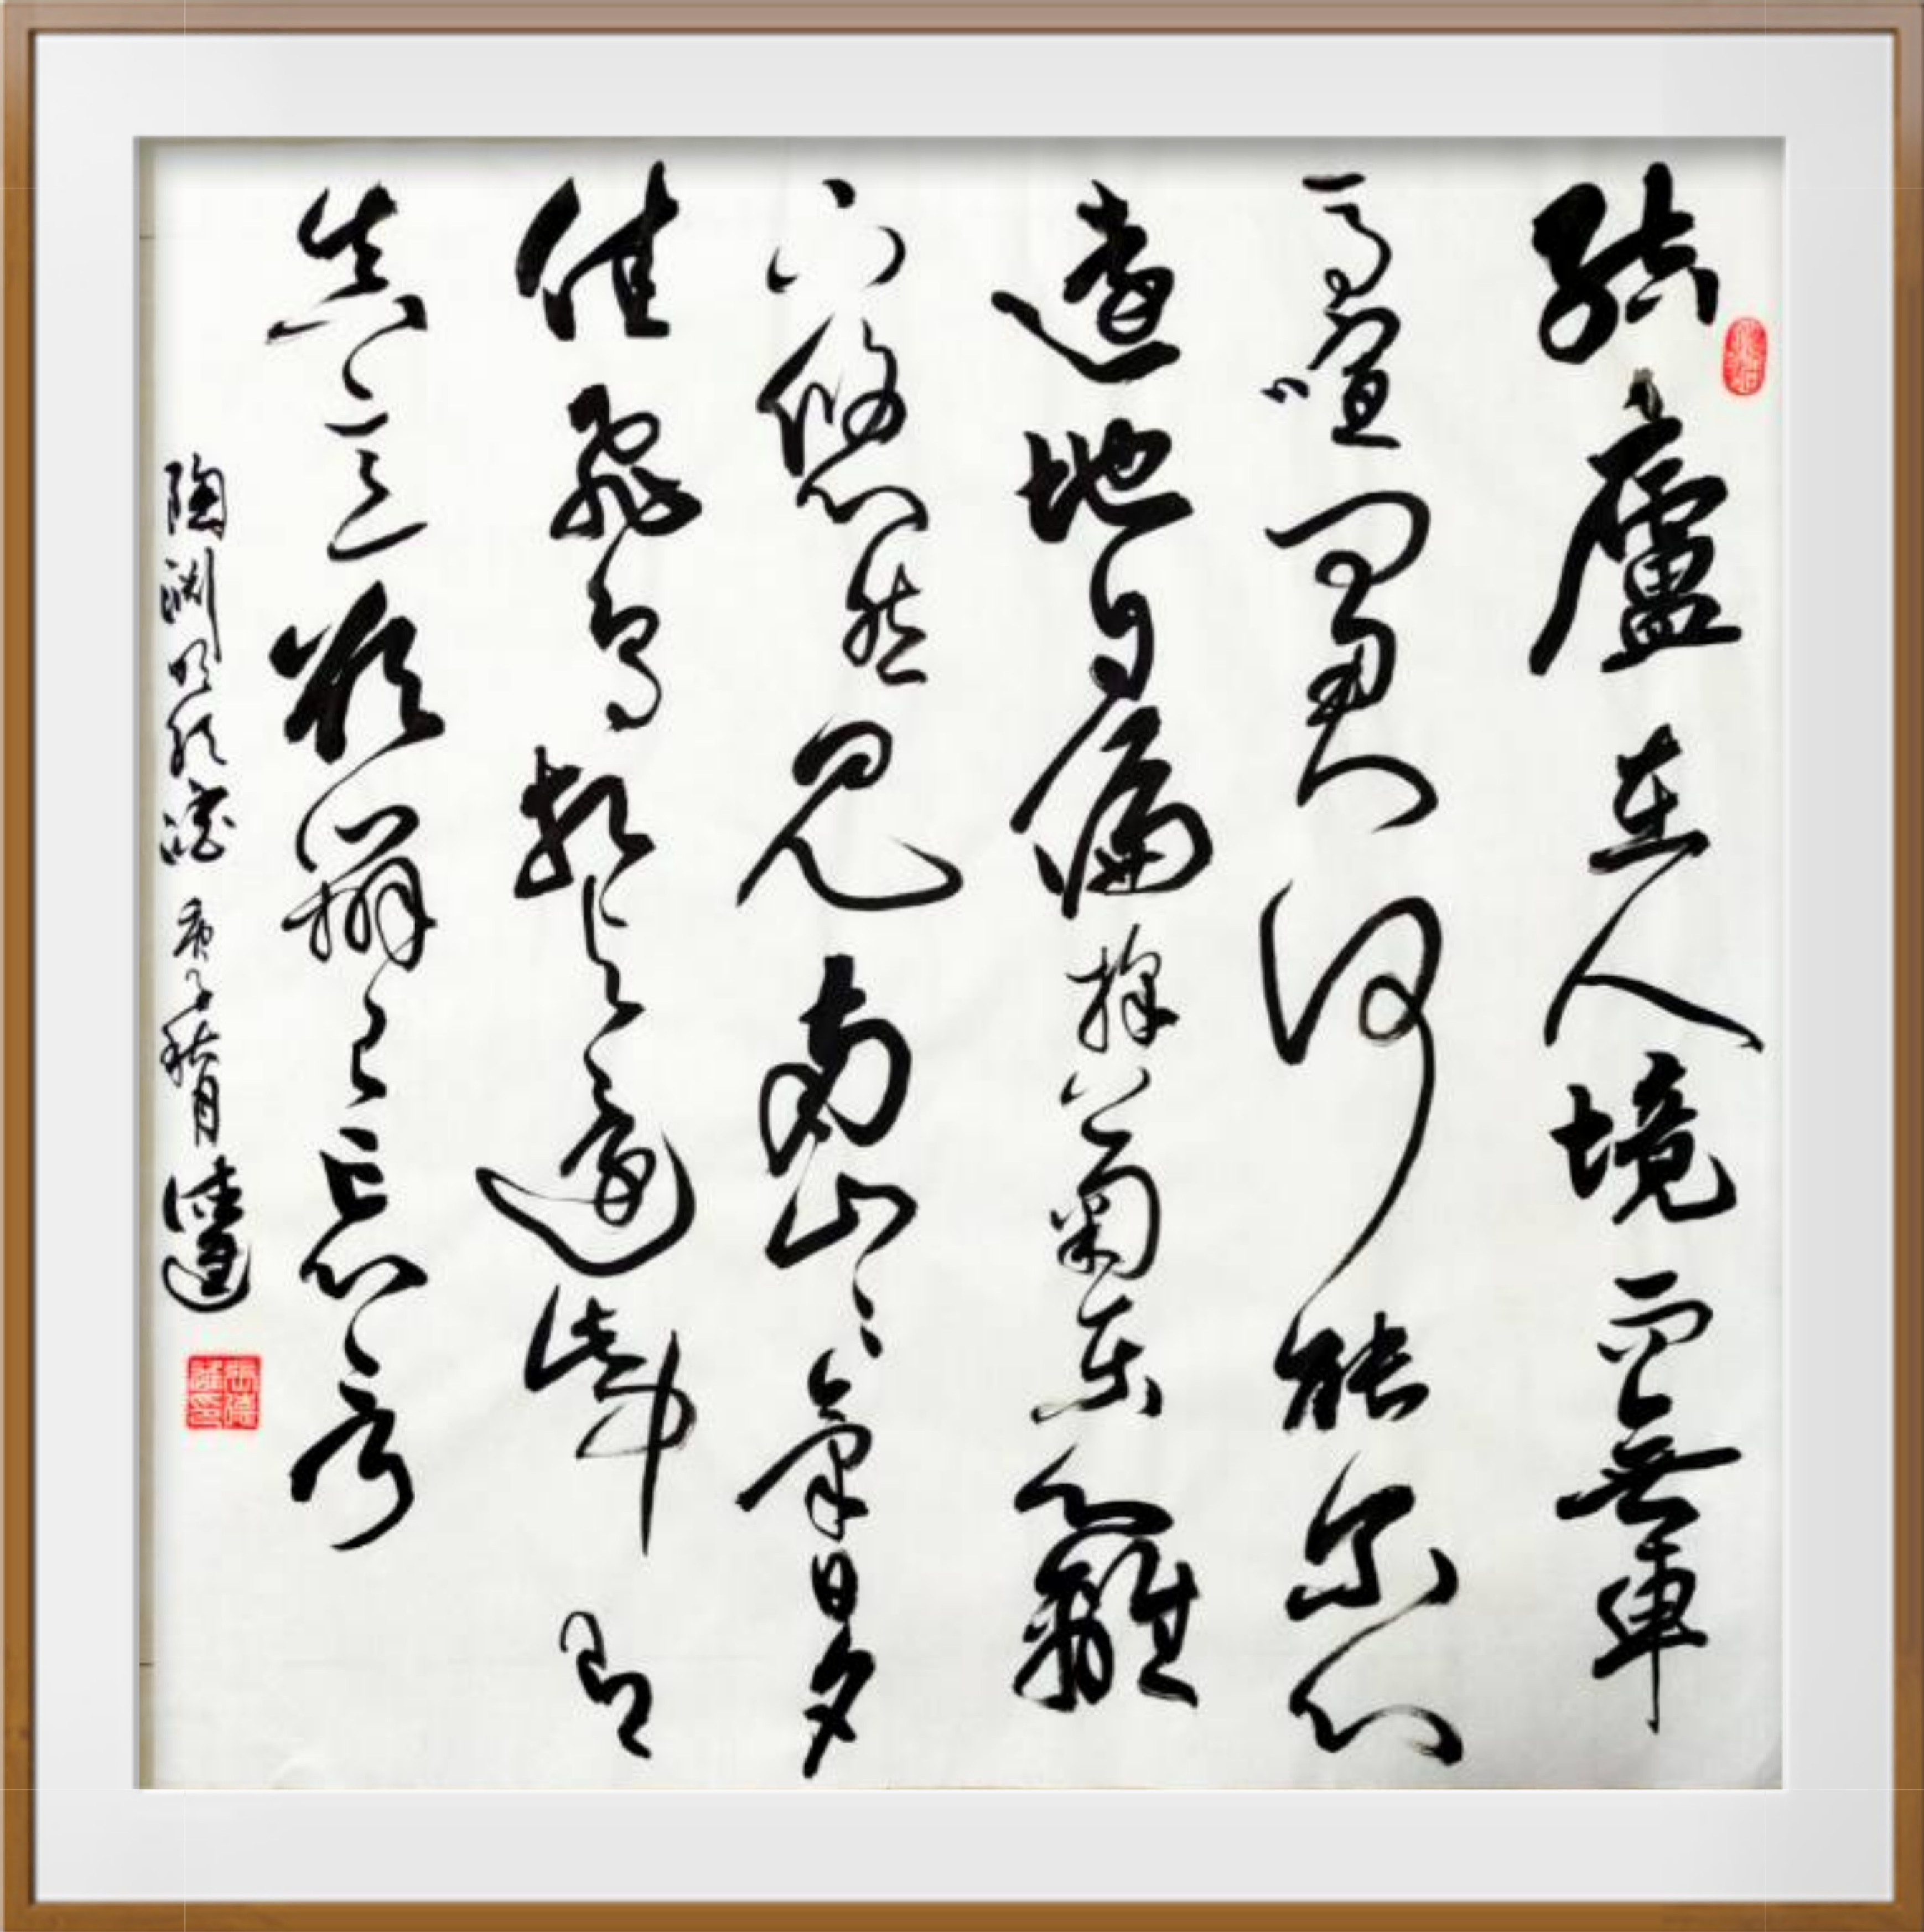 結廬在人境而無車
馬喧問君何能爾心
遠地自偏採菊東籬
下悠然見南山々氣日夕
佳飛鳥相與還此中有
真意欲辨已忘言
陶淵明飲酒 庚子秋月